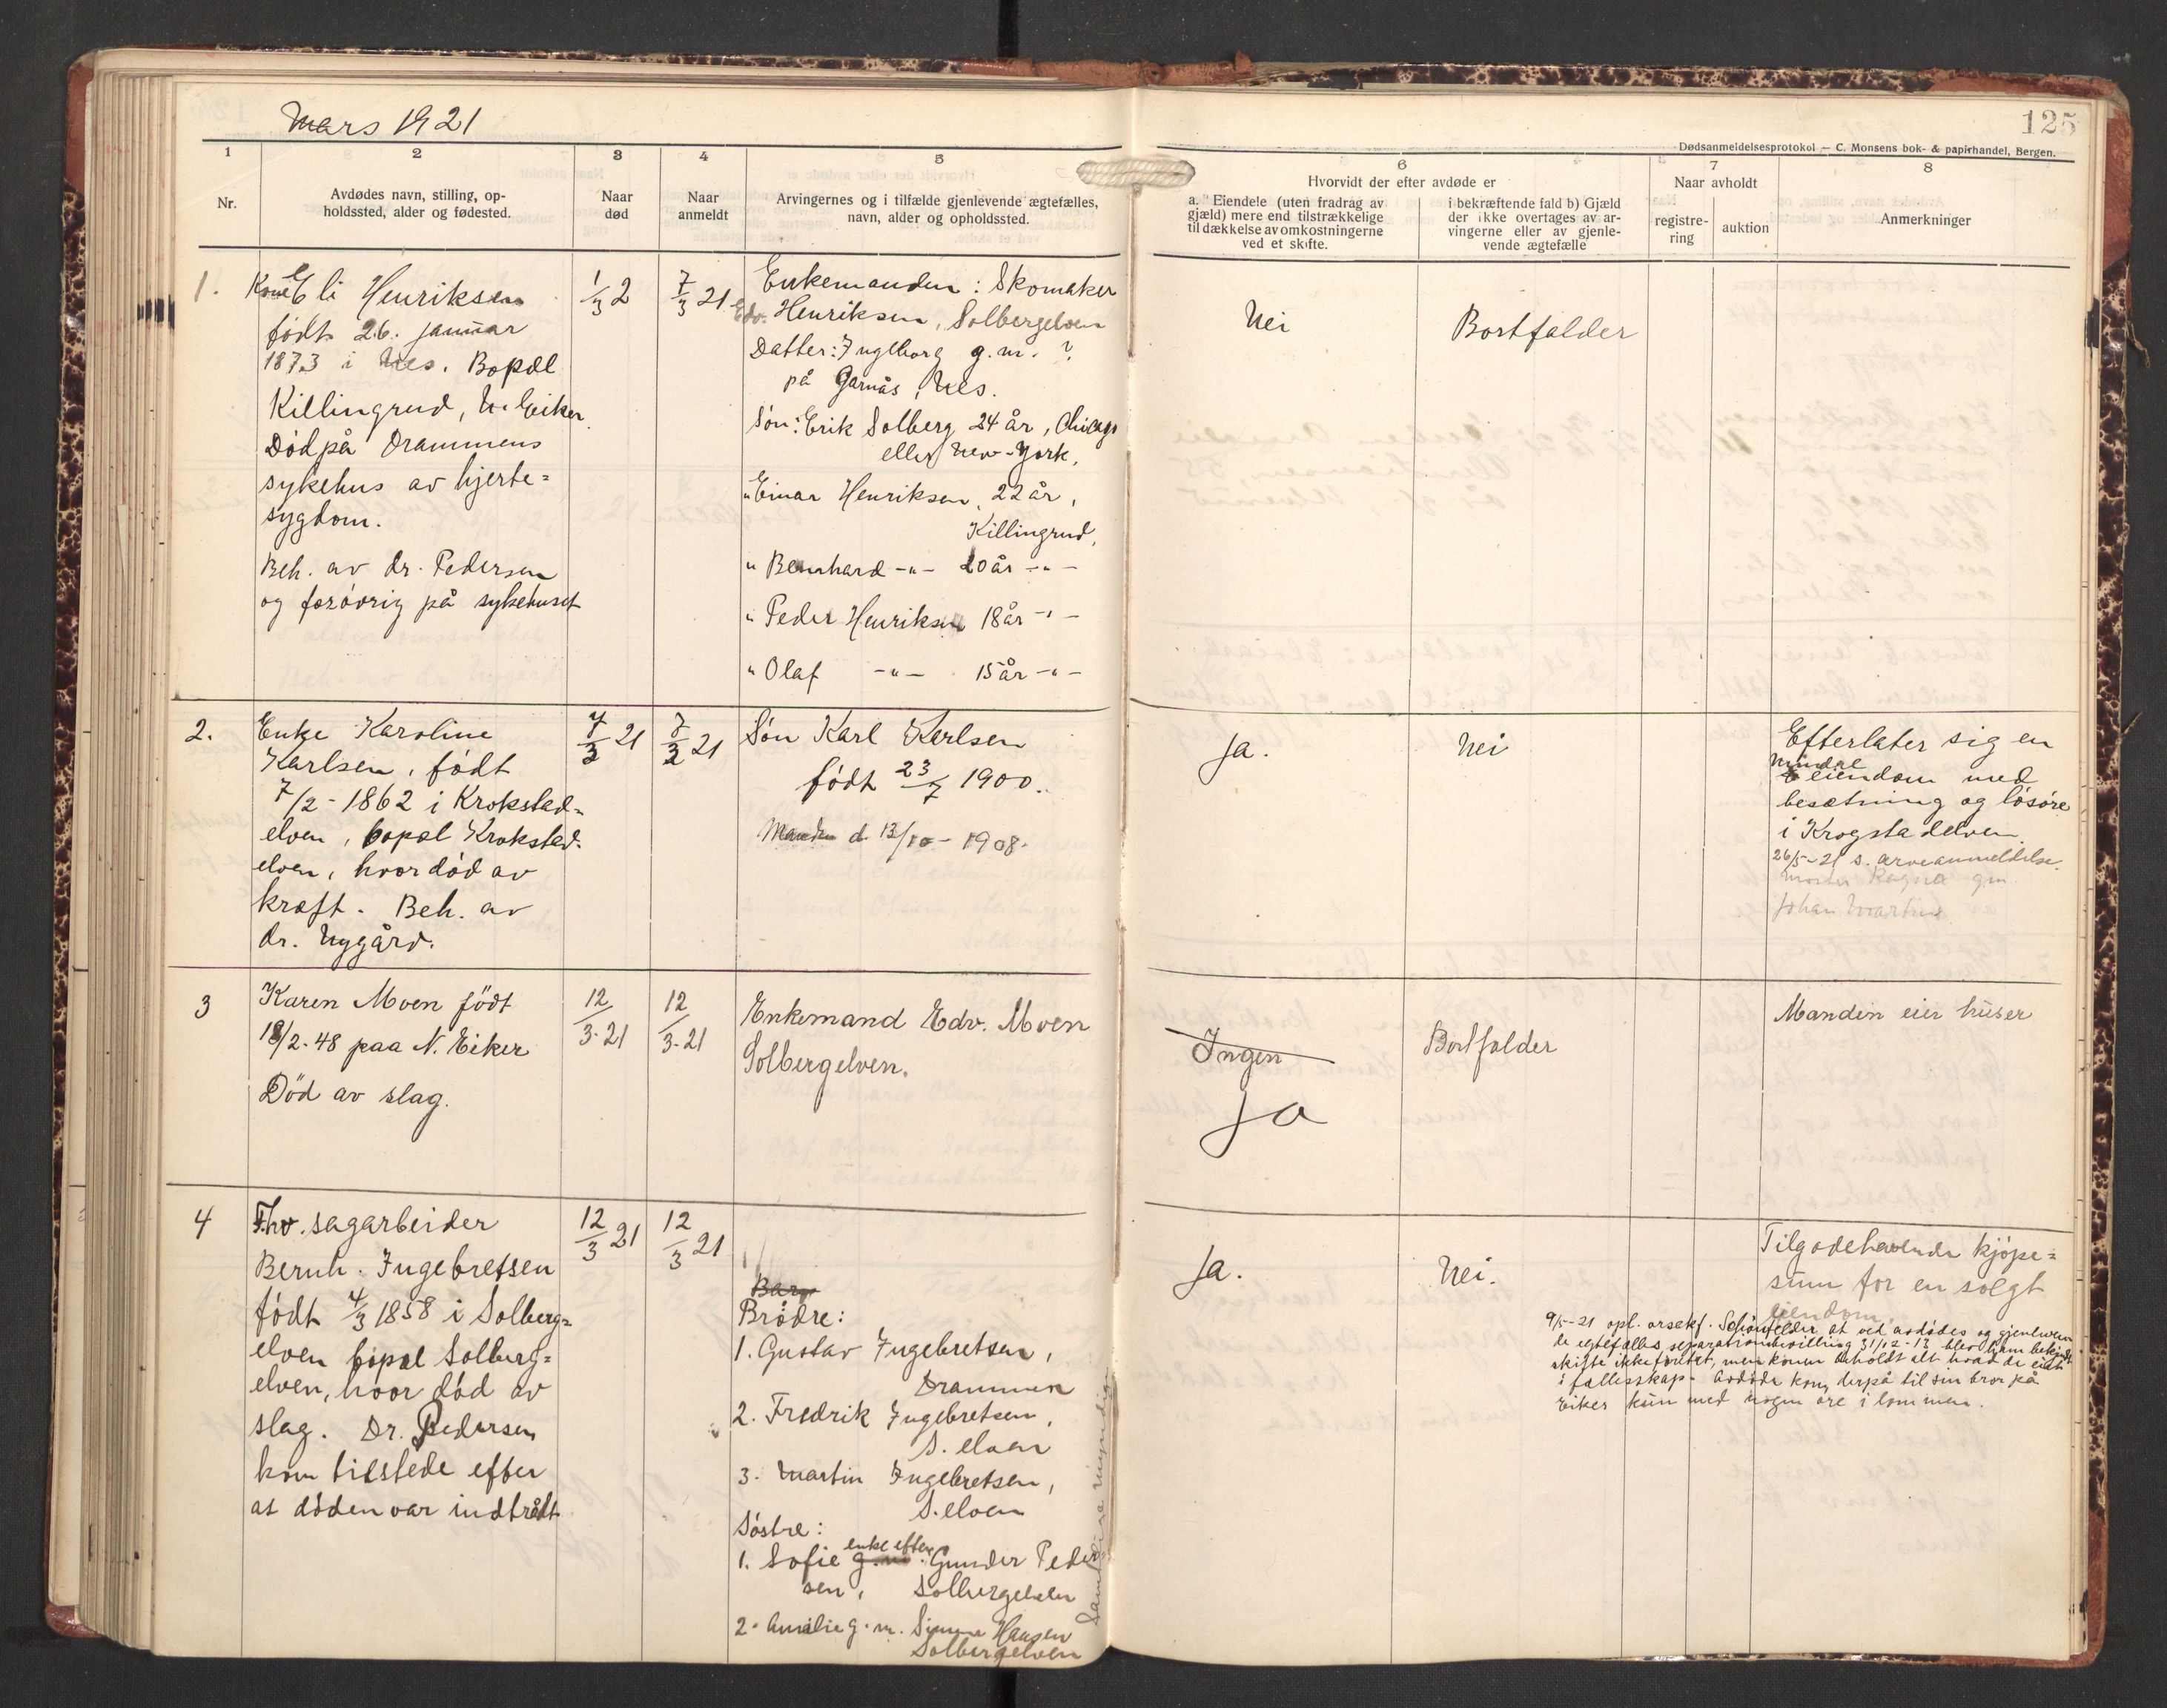 Mars 1921
125
Dødsanmeldelsesprotokol — C. Monsens bok- & papirhandel, Bergen.
1
2
3
4
5
6
7
8
Nr.
Avdødes navn, stilling, op-
holdssted, alder og fødested.
Naar
død
Naar
anmeldt
Arvingernes og i tilfælde gjenlevende ægtefælles,
navn, alder og opholdssted.
Hvorvidt der efter avdøde er
a. Eiendele (uten fradrag av
gjæld) mere end tilstrækkelige
til dækkelse av omkostningerne
ved et skifte.
i bekræftende fald b) Gjæld
der ikke overtages av ar-
vingerne eller av gjenle-
vende ægtefælle
Naar avholdt
registre-
ring
auktion
Anmerkninger
1.
Kone Eli Henriksen
født 26. januar
1873 i Nes. Bopæl
Killingrud, N. Eiker
Død på Drammens
sykehus av hjerte=
sygdom.
Beh. av dr. Pedersen
og forøvrig på sykehuset
1/3 2
7/3 21
Enkemanden: Skomaker
Edv. Henriksen, Solbergelven
Datter: Ingeborg g.m. ?
på Garnås, Nes.
Søn: Erik Solberg 24 år, Chicago
eller New-York,
" Einar Henriksen, 22 år,
Killingrud,
" Bernhard -"- 20 år -"-
" Peder Henriksen 18 år -"-
" Olaf -"- 15 år -"-
Nei
Bortfalder
2.
Enke Karoline
Karlsen, født
7/2 - 1862 i Krokstad=
elven, bopæl Krokstad-
elven, hvor død av
kræft. Beh. av
dr. Nygård.
7/3 21
7/3 21
Søn Karl Karlsen
født 23/7 1900.
Manden d. 13/10 - 1908.
Ja.
Nei
Efterlater sig en
eiendom med
besætning og løsøre
i Krogstadelven
26/5-21 s. arveanmeldelse.
Ragna gm.
Johan Martins
3
Karen Moen født
18/2-48 paa N. Eiker
Död av slag.
12/3-21
12/3-21
Enkemand Edv. Moen
Solbergelven.
Ingen
Ja
Bortfalder
Manden eier huser
4
Fhv. sagarbeider
Bernh. Ingebretsen
født 4/3 1858 i Solberg=
elven bopæl Solberg=
elven, hvor død av
slag. Dr. Pedersen
kom tilstede efter
at døden var indtrådt
12/3 21
12/3 21
Barn
Brødre:
1. Gustav Ingebretsen,
Drammen
2. Fredrik Ingebretsen,
S. elven
3. Martin Ingebretsen,
S. elven
Søstre:
enke efter
1. Sofie g.m. Gunder Peder
sen, Solbergelven
2. Amalie g.m. Simen Hansen
Solbergelven
Samtlige myndige
Ja.
Nei.
Tilgodehavende kjøpe=
sum for en solgt
eiendom.
9/5-21 opl. orsakf. Schønfelder at ved avdødes og gjenleven
de egtefælles separationsbevilling 31/12-13 blev ham bekjendt
skifte ikke foretat, men konen beholdt alt hvad de eiet
i fællesskap. Avdøde kom derpå til sin bror på
Eiker kun med nogen øre i lommen.